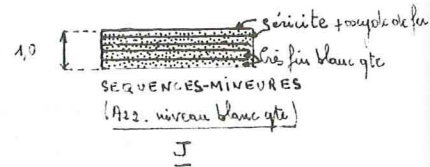 séricite + oxyde de fer
1,0
Grès fin blanc qte
SEQUENCES-MINEURES
(A22. niveau blanc qte)
J